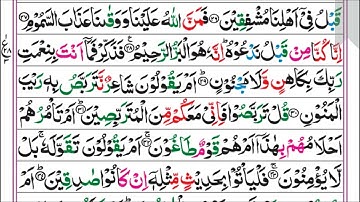 قَبْلُ فِىْۤ اَهْلِنَا مُشْفِقِيْنَ ۝۲۶ فَمَنَّ اللّٰهُ عَلَيْنَا وَوَقٰىنَا عَذَابَ السَّمُوْمِ ۝۲۷
اِنَّا كُنَّا مِنْ قَبْلُ نَدْعُوْهُ ؕ اِنَّهٗ هُوَ الْبَرُّ الرَّحِيْمُ ۝۲۸ فَذَكِّرْ فَمَاۤ اَنْتَ بِنِعْمَتِ
رَبِّكَ بِكَاهِنٍ وَّلَا مَجْنُوْنٍ ۝۲۹ اَمْ يَقُوْلُوْنَ شَاعِرٌ نَّتَرَبَّصُ بِهٖ رَيْبَ
الْمَنُوْنِ ۝۳۰ قُلْ تَرَبَّصُوْا فَاِنِّىْ مَعَكُمْ مِّنَ الْمُتَرَبِّصِيْنَ ۝۳۱ اَمْ تَاْمُرُهُمْ
اَحْلَامُهُمْ بِهٰذَاۤ اَمْ هُمْ قَوْمٌ طَاغُوْنَ ۝۳۲ اَمْ يَقُوْلُوْنَ تَقَوَّلَهٗ ۚ بَلْ
لَّا يُؤْمِنُوْنَ ۝۳۳ فَلْيَاْتُوْا بِحَدِيْثٍ مِّثْلِهٖۤ اِنْ كَانُوْا صٰدِقِيْنَ ۝۳۴ اَمْ